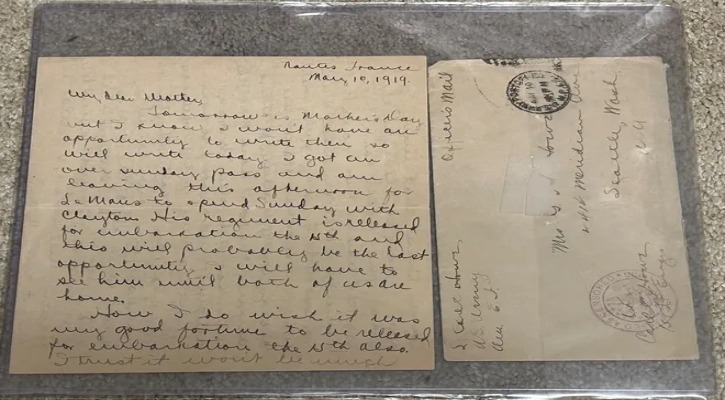 Nantes France
May, 10, 1919.
My Dear Mother,
Tomorrow is Mother's Day
but I know I won't have an
opportunity to write then so
will write today. I got an
over sunday pass and am
leaving this afternoon for
Le Mans to spend Sunday with
Clayton. His regiment is released
for embarkation the 15th and
this will probably be the last
opportunity I will have to
see him until both of us are
home.
How I do wish it was
my good fortune to be released
for embarkation the 15th also.
I trust it won't be much
Officers Mail
Mrs
Meridian Ave
Seattle, Wash.
U.S. Army